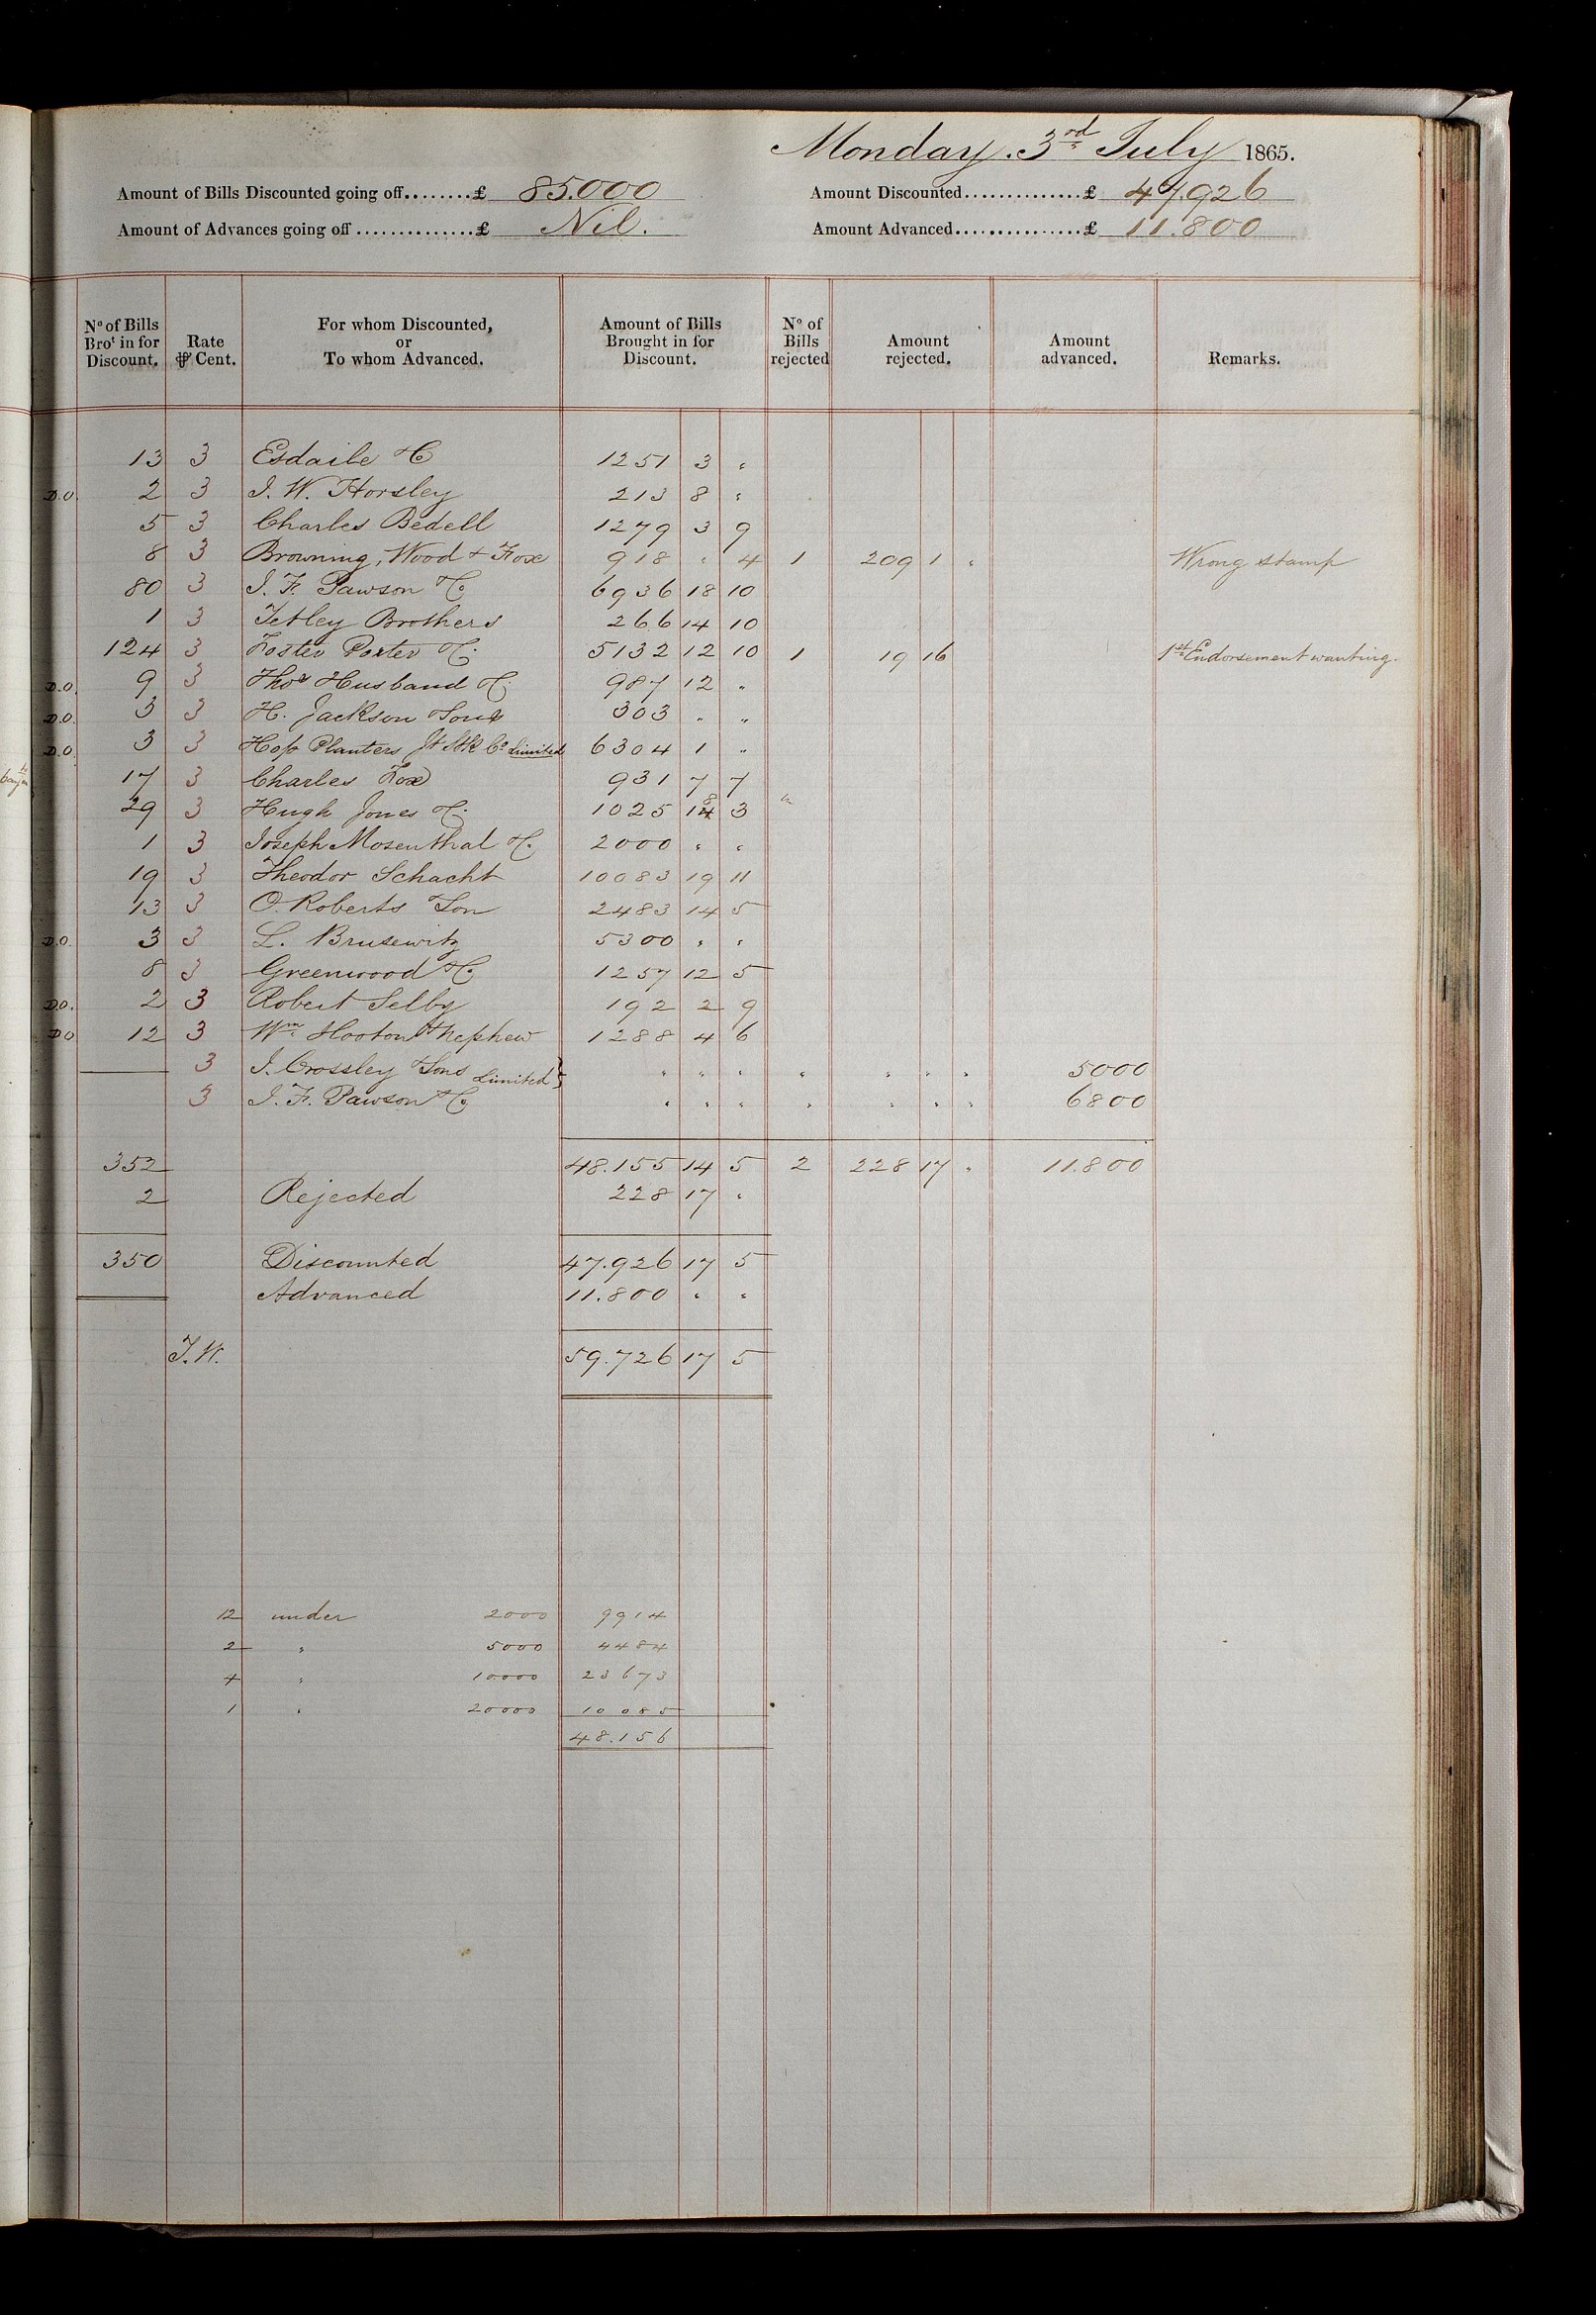 Monday. 3rd July 1865.
Amount of Bills Discounted going off........£ 85.000 Amount Discounted..............£ 47.926
Amount of Advances going off ..............£ Nil. Amount Advanced................£ 11.800
No of Bills Brot in for Discount. Rate ⅌ Cent. For whom Discounted, or To whom Advanced. Amount of Bills Brought in for Discount. No of Bills rejected Amount rejected. Amount advanced. Remarks.
13 3 Esdaile & C 1251 3 "
D.O. 2 3 J. W. Horsley 213 8 "
5 3 Charles Bedell 1279 3 9
8 3 Browning, Wood & Fox 918 " 4 1 209 1 " Wrong stamp
80 3 J. F. Pawson & Co 6936 18 10
1 3 Tetley Brothers 266 14 10
124 3 Foster Porter & Co 5132 12 10 1 19 16 1st Endorsement wanting.
D.O. 9 3 Thos Husband & Co 987 12 "
D.O. 3 3 H. Jackson & Sons 303 " "
D.O. 3 3 Hop Planters Jt Stk Co Limited 6304 1 "
17 3 Charles Fox 931 7 7
29 3 Hugh Jones & Co 1025 18 3
1 3 Joseph Mosenthal & Co 2000 " "
19 3 Theodor Schacht 10083 19 11
13 3 O. Roberts & Son 2483 14 5
D.O. 3 3 L. Brusewitz 5300 " "
8 3 Greenwood & Co 1257 12 5
D.O. 2 3 Robert Selby 192 2 9
DO 12 3 Wm Hooton & Nephew 1288 4 6
3 J. Crossley & Sons Limited } " " " " " " " 5000
3 J. F. Pawson & Co " " " " " " " 6800
352 48.155 14 5 2 228 17 " 11.800
2 Rejected 228 17 "
350 Discounted 47.926 17 5
Advanced 11.800 " "
J.W. 59.726 17 5
12 under 2000 9914
2 " 5000 4484
4 " 10.000 23673
1 " 20000 10085
48.156